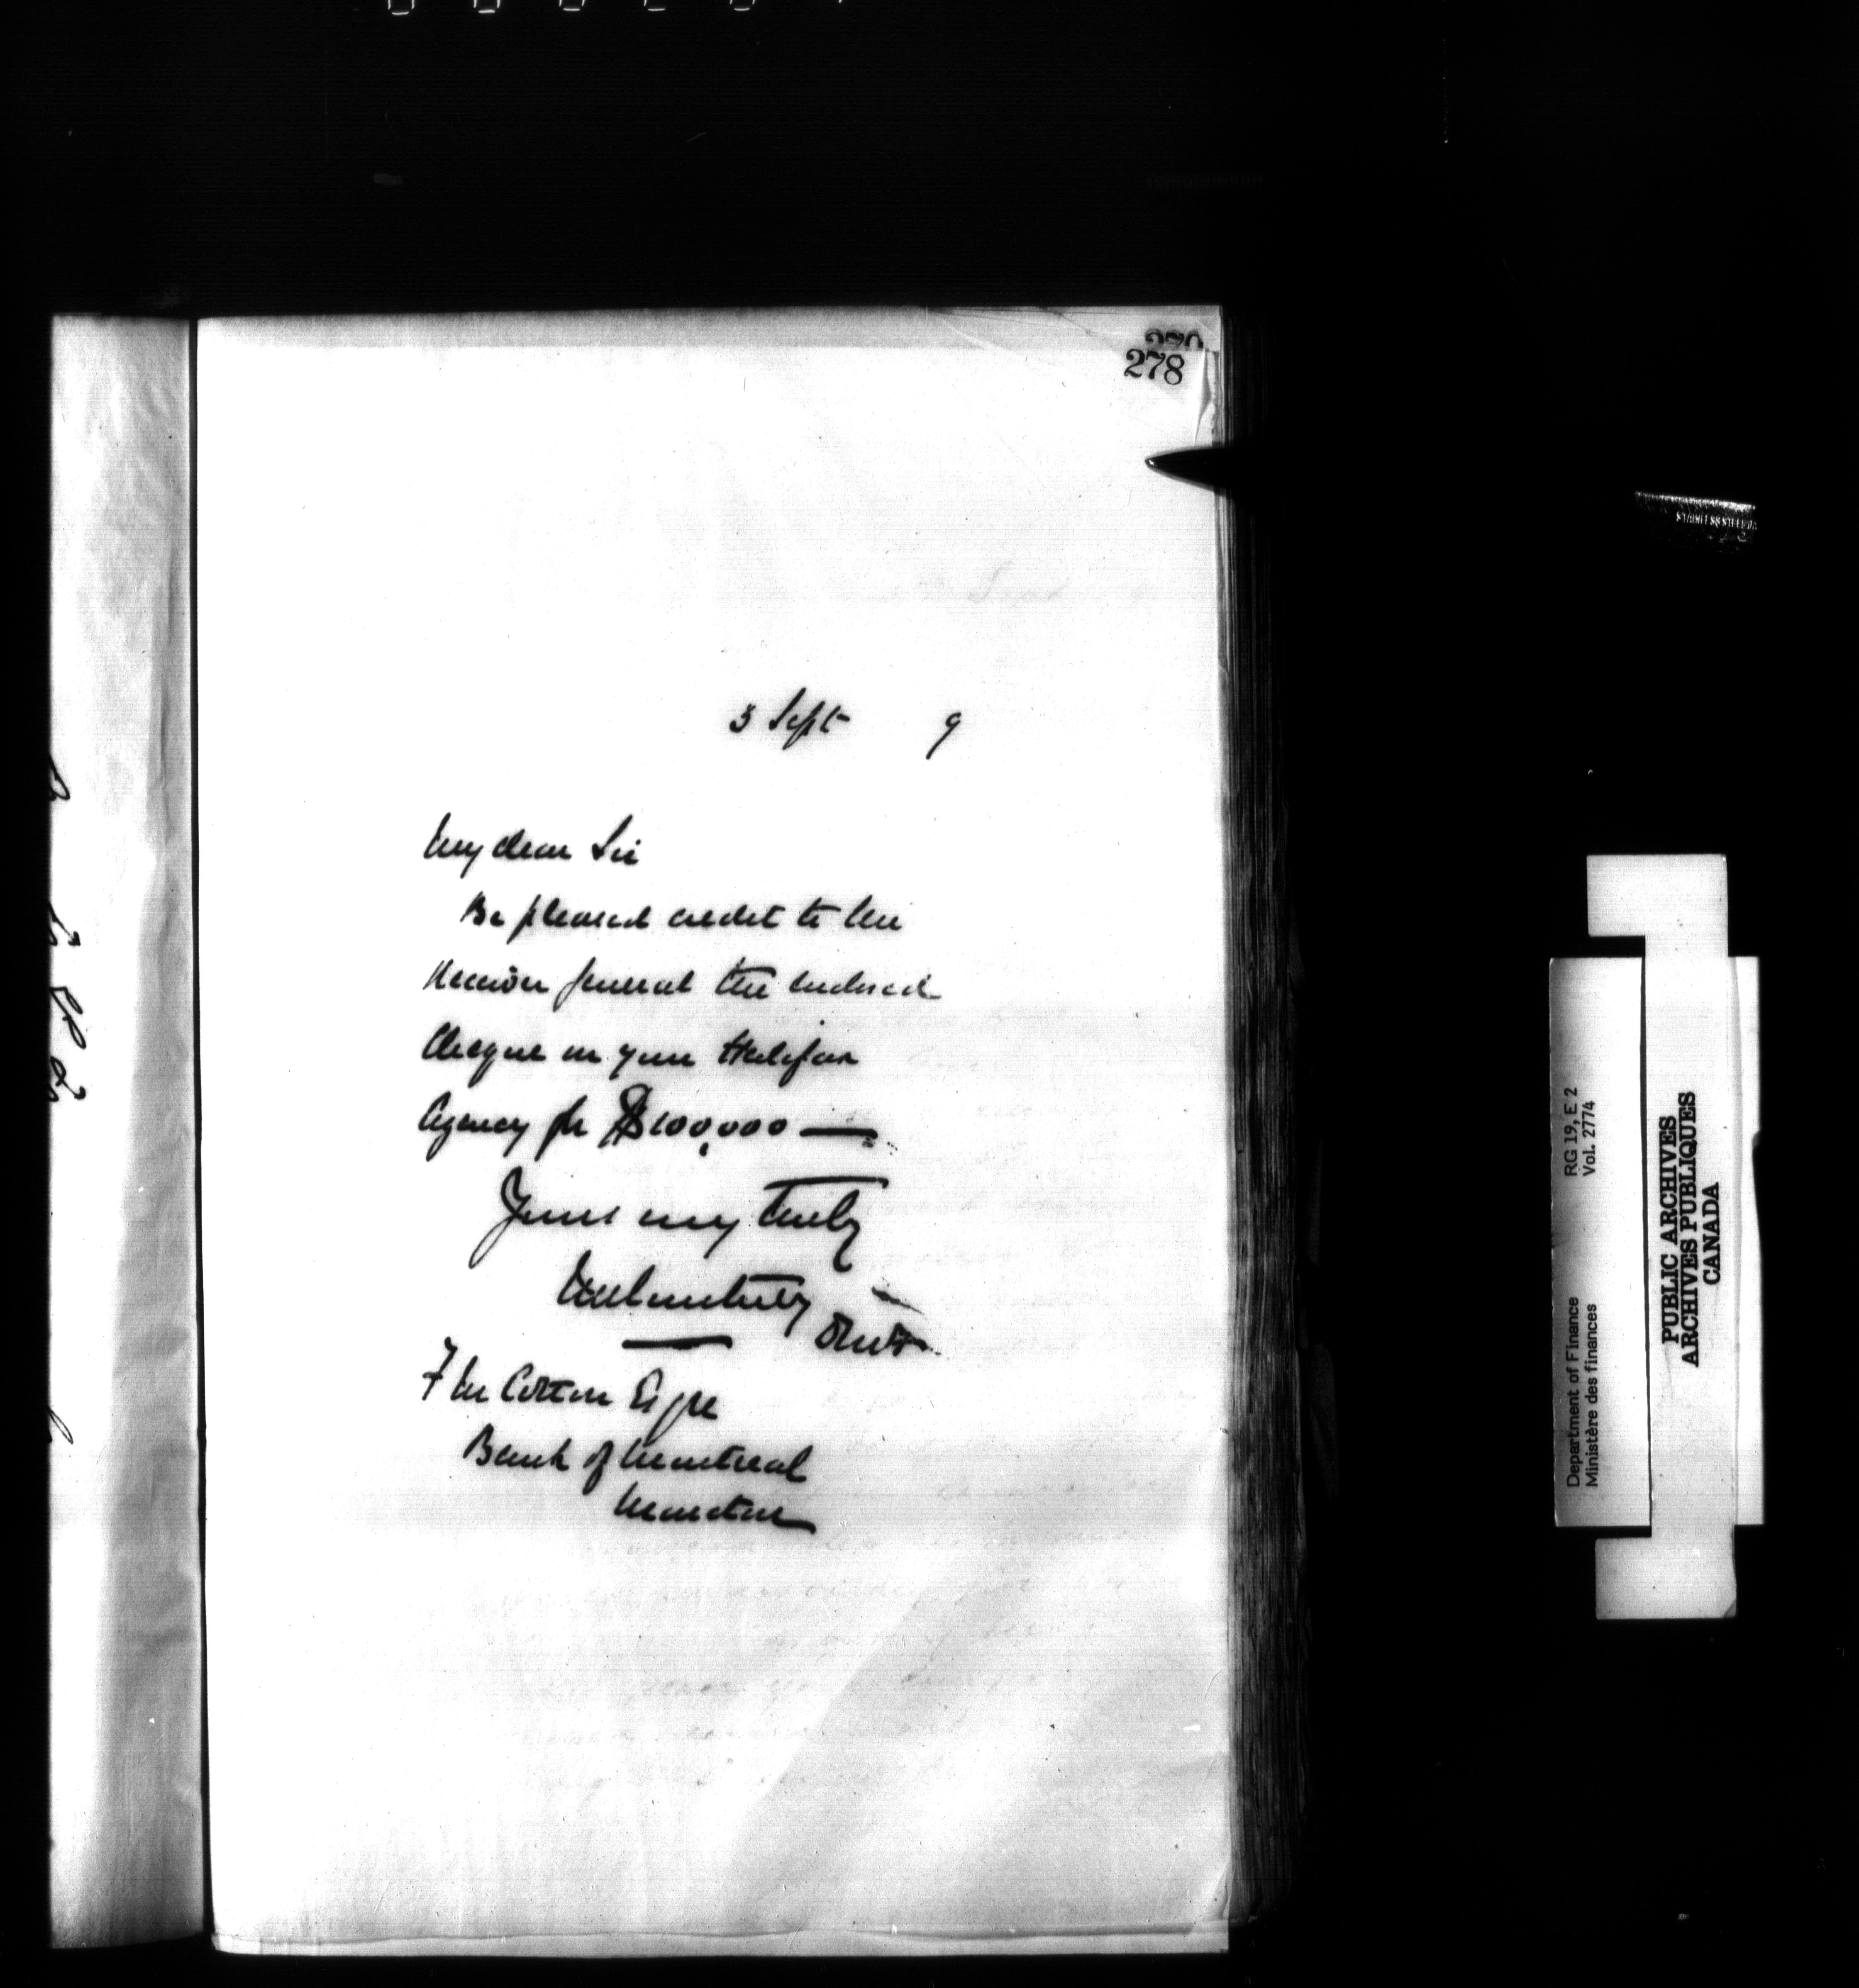 278
3 Sept 9
My dear Sir
Be pleased credit to the
Receiver General the enclosed
Cheque on your Halifax
Agency for $100,000 —
Yours very truly
F M Cotton Esqre
Bank of Montreal
Moncton
RG 19, E 2
Vol. 2774
Department of Finance
Ministère des finances
PUBLIC ARCHIVES
ARCHIVES PUBLIQUES
CANADA